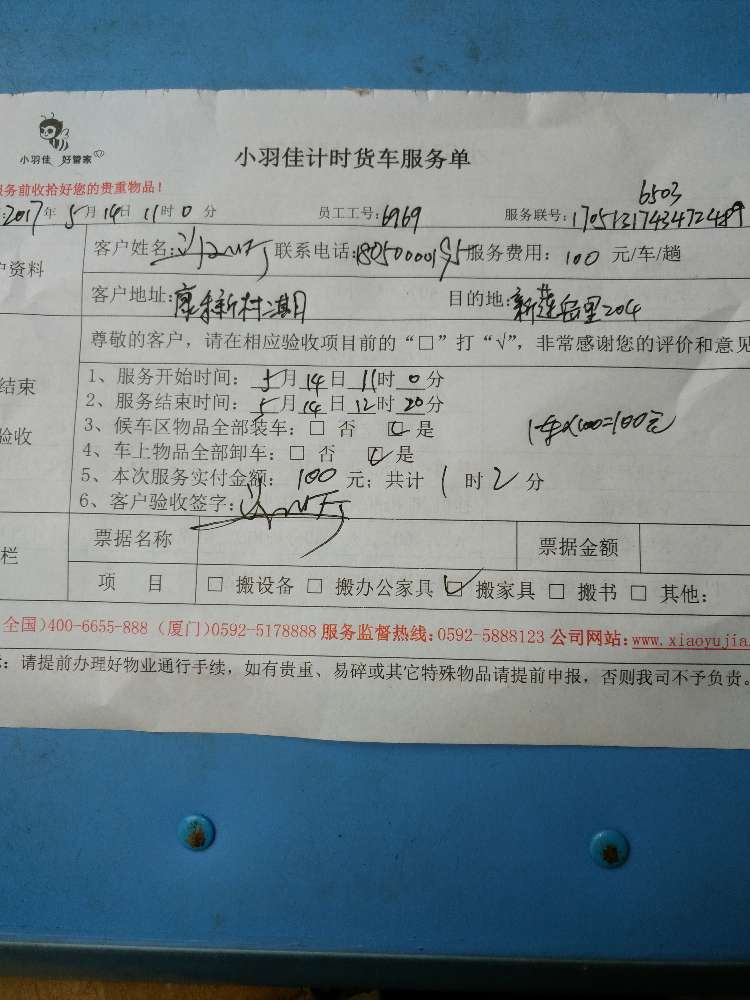 小羽佳 好管家
小羽佳计时货车服务单
务前收拾好您的贵重物品！
6503
:2017年5月14日11时0分 员工工号:6969 服务联号:170513174347248
户资料
客户姓名: 联系电话:18050000195 服务费用: 100 元/车/趟
客户地址:康 新村二期 目的地:新莲岳里204
尊敬的客户，请在相应验收项目前的“□”打“√”，非常感谢您的评价和意见
结束
验收
1、服务开始时间: 5月14日11时0分
2、服务结束时间: 5月14日12时20分
3、候车区物品全部装车: □ 否 ☑ 是
1车×100=100元
4、车上物品全部卸车: □ 否 ☑ 是
5、本次服务实付金额: 100 元; 共计 1 时 2 分
6、客户验收签字:
栏
票据名称 票据金额
项 目 □ 搬设备 □ 搬办公家具 ☑ 搬家具 □ 搬书 □ 其他:
全国)400-6655-888 (厦门)0592-5178888 服务监督热线:0592-5888123 公司网站:www.xiaoyujia.
: 请提前办理好物业通行手续，如有贵重、易碎或其它特殊物品请提前申报，否则我司不予负责。